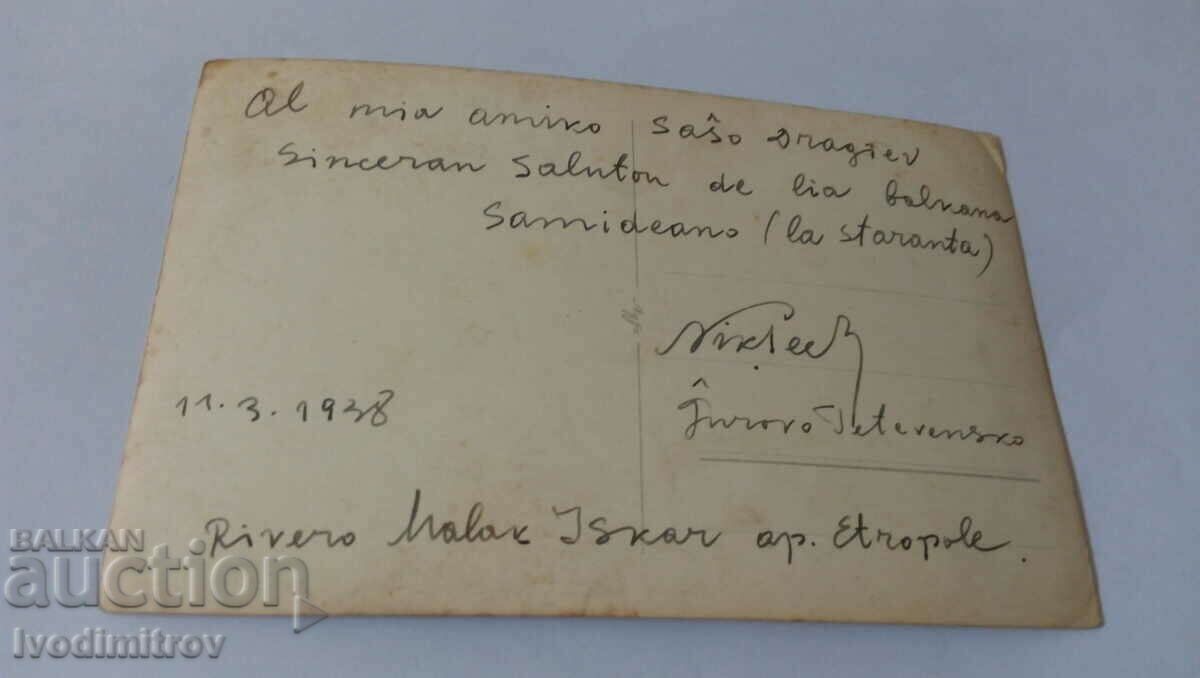 Al mia amiko Saŝo Dragiev
Sinceran Saluton de lia balkana
Samideano (la staranta)
11.3.1938
Ĵurovo Tetevensko
Rivero Malak Iskar ap. Etropole.
BALKAN
auction
Ivodimitrov